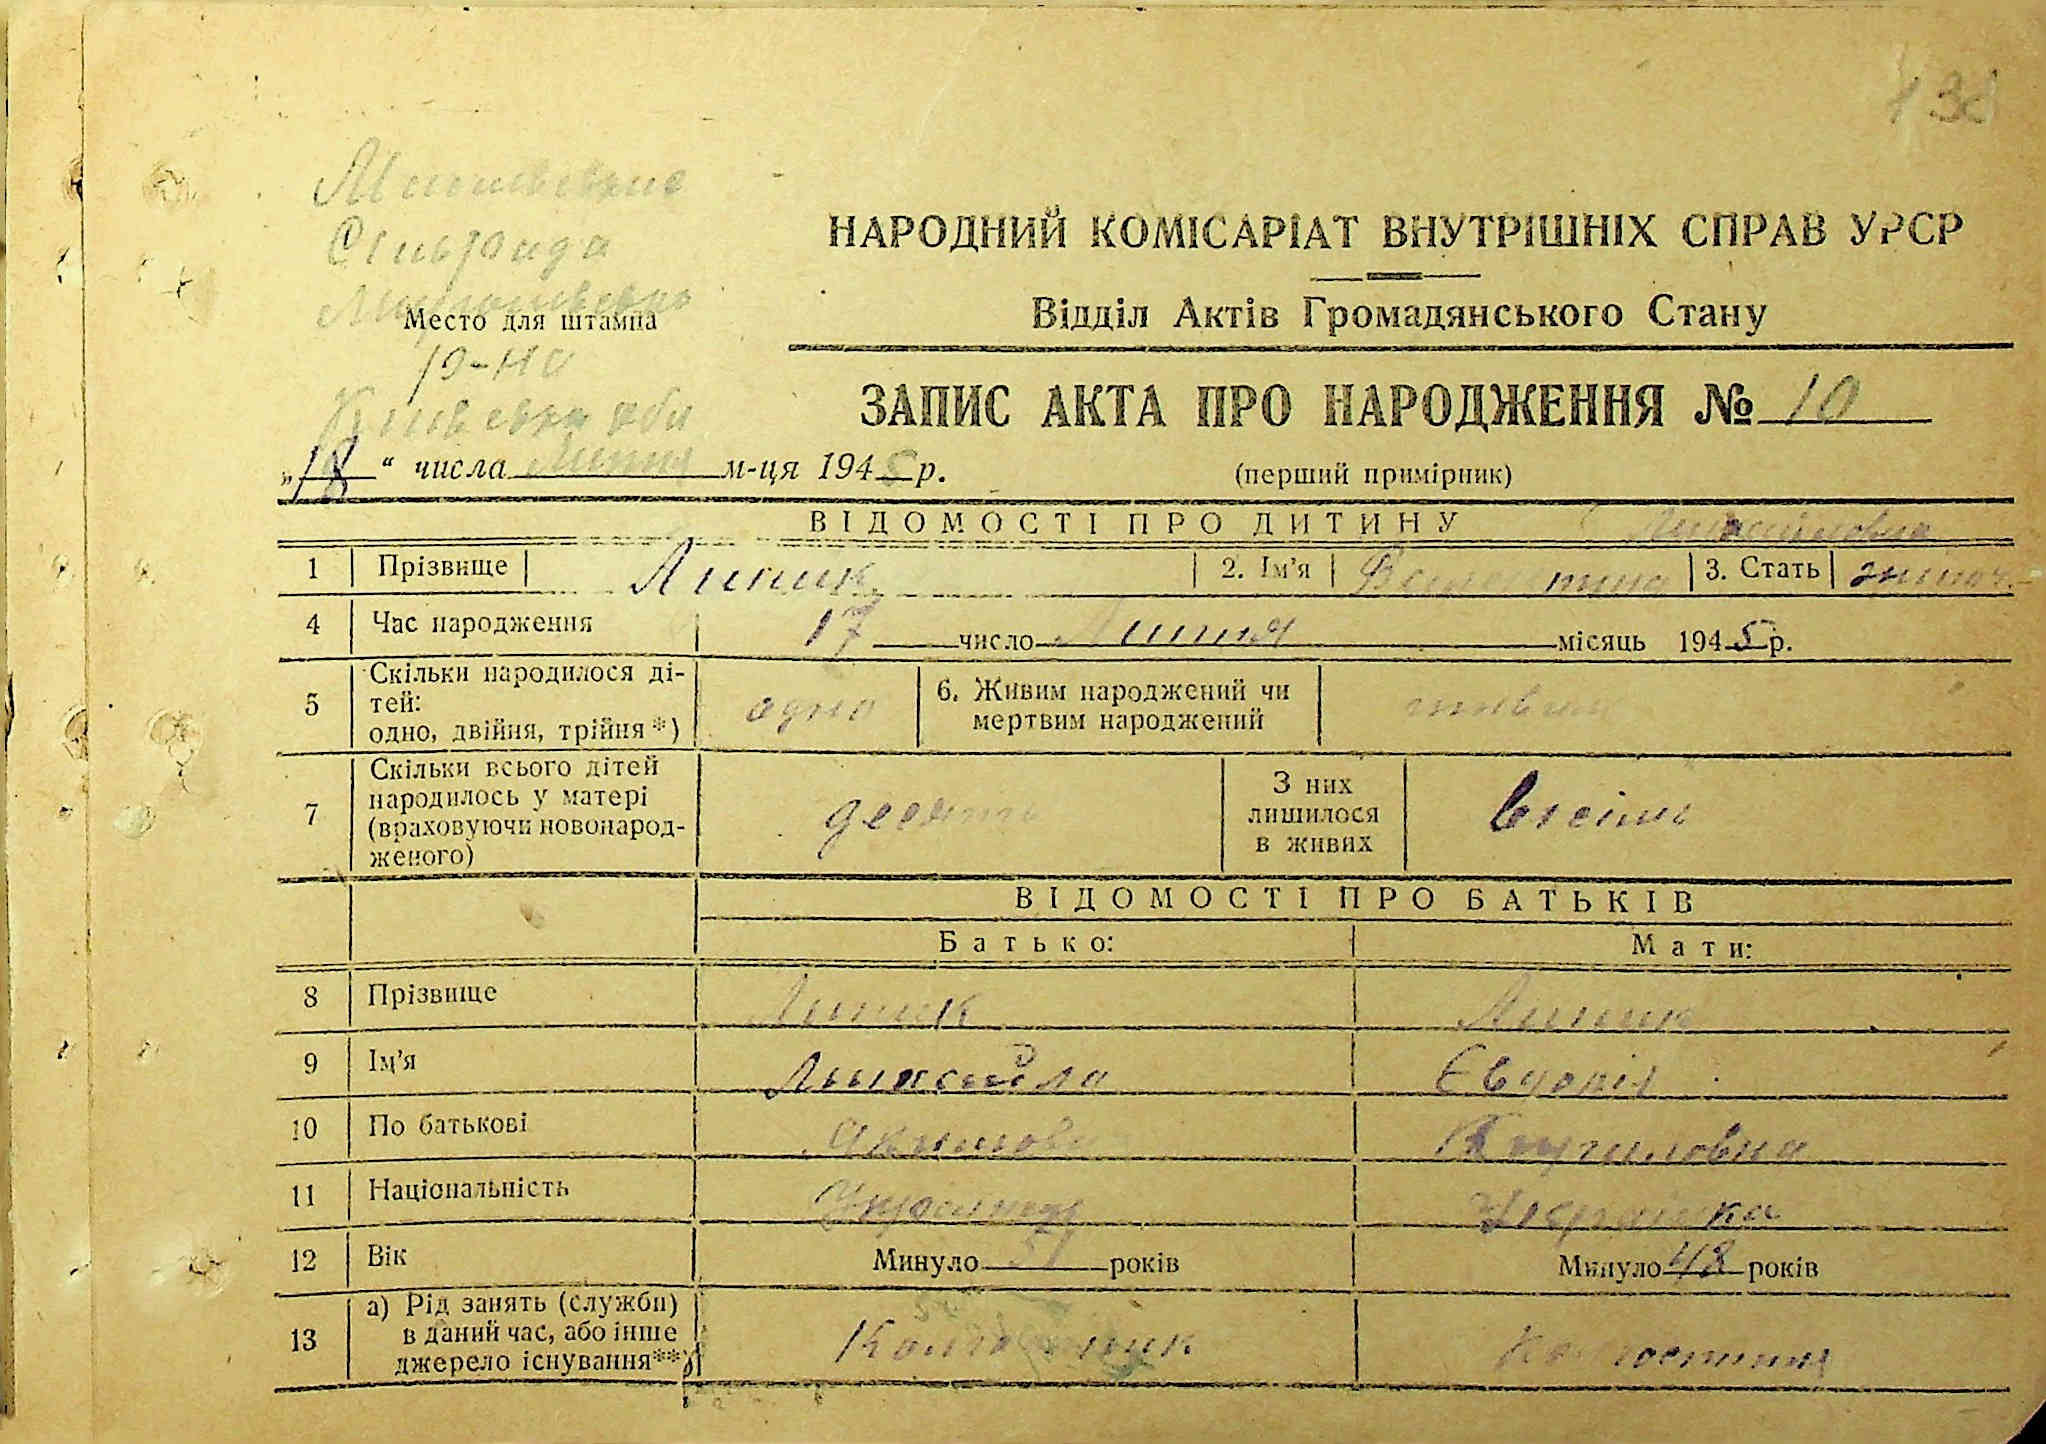 138
Сільрада
НАРОДНИЙ КОМІСАРІАТ ВНУТРІШНІХ СПРАВ УРСР
Відділ Актів Громадянського Стану
Место для штампа
р-ну
ЗАПИС АКТА ПРО НАРОДЖЕННЯ № 10
„18“ числа Липня м-ця 1945 р.
(перший примірник)
ВІДОМОСТІ ПРО ДИТИНУ
1 Прізвище Липик 2. Ім'я 3. Стать жіноч.
4 Час народження 17 число Липня місяць 1945 р.
5 Скільки народилося ді-
тей:
одно, двійня, трійня *) одно 6. Живим народжений чи
мертвим народжений живим
7 Скільки всього дітей
народилось у матері
(враховуючи новонарод-
женого) десять З них
лишилося
в живих вісім
ВІДОМОСТІ ПРО БАТЬКІВ
Батько: Мати:
8 Прізвище Липик Липик
9 Ім'я Євдокія
10 По батькові
11 Національність Українець Українка
12 Вік Минуло 51 років Минуло 48 років
13 а) Рід занять (служби)
в даний час, або інше
джерело існування**) Колгоспник Колгоспниця